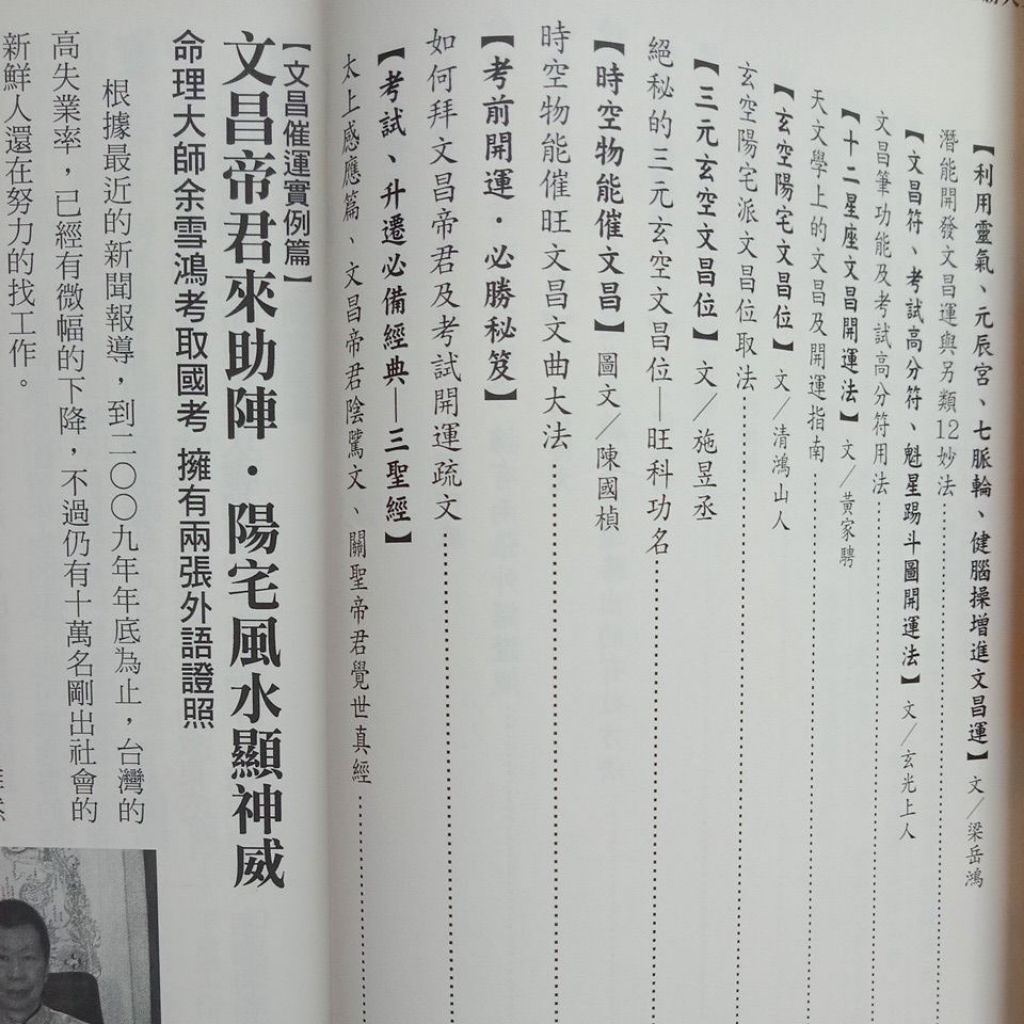 【利用靈氣、元辰宮、七脈輪、健腦操增進文昌運】文／梁岳鴻
潛能開發文昌運與另類12妙法
【文昌符、考試高分符、魁星踢斗圖開運法】文／玄光上人
文昌筆功能及考試高分符用法
【十二星座文昌開運法】文／黃家騁
天文學上的文昌及開運指南
【玄空陽宅文昌位】文／清鴻山人
玄空陽宅派文昌位取法
【三元玄空文昌位】文／施昱丞
絕秘的三元玄空文昌位—旺科功名
【時空物能催文昌】圖文／陳國楨
時空物能催旺文昌文曲大法
【考前開運．必勝秘笈】
如何拜文昌帝君及考試開運疏文
【考試、升遷必備經典—三聖經】
太上感應篇、文昌帝君陰騭文、關聖帝君覺世真經
【文昌催運實例篇】
文昌帝君來助陣．陽宅風水顯神威
命理大師余雪鴻考取國考 擁有兩張外語證照
根據最近的新聞報導，到二〇〇九年年底為止，台灣的
高失業率，已經有微幅的下降，不過仍有十萬名剛出社會的
新鮮人還在努力的找工作。